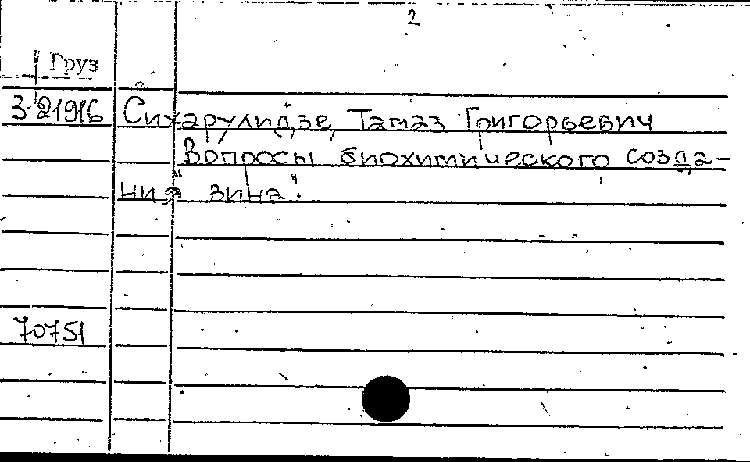 2
Груз
3-21916 Сихарулидзе, Тамаз Григорьевич
"Вопросы биохимического созда-
ния зина".
70751